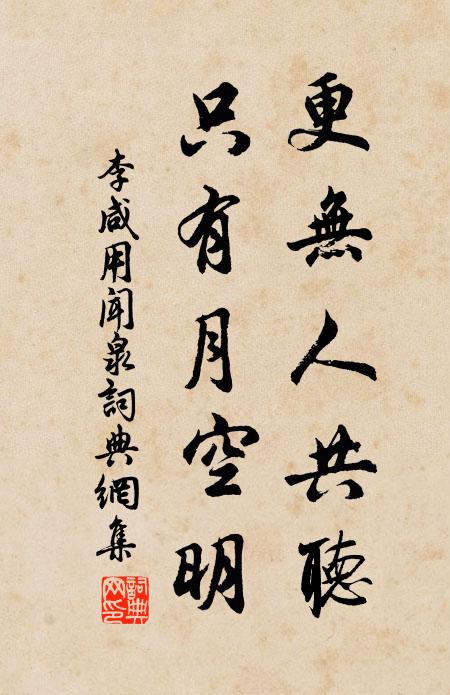 更無人共聽
只有月空明
李咸用聞泉詞典網集
詞典網印